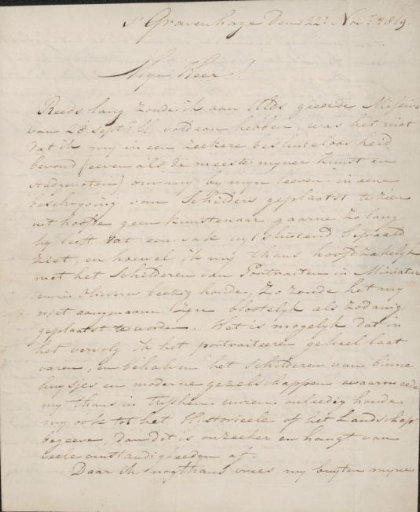 s'Gravenhage den 22e Nov. 1819.
Mijn Heer!
Reeds lang zoude ik aan UEds geëerde Missive
van 28 Sept. ll. voldaan hebben, was het niet
dat ik mij in een zeekere besluiteloosheid
bevond (even als de meeste mijner kunst en
stadgenoten) om mij bij mijn leeven in eene
beschrijving van Schilders geplaatst te zien
uit hoofde geen kunstenaar gaarne zo lang
hij leeft tot een vak uitsluitend bepaald
ziet, en hoewel ik mij thans hoofdzakelijk
met het Schilderen van Portraiten in Miniatuur
en in bezig houde, Zo zoude het mij
niet aangenaam zijn blootelijk als zodanig
geplaatst te worden. Het is mogelijk dat ik
het vervolg in het portraiteeren geheel laat
varen, en behalven het schilderen van binne
huysjes en moderne gezelschappen waarmede
mij thans in tuschen uuren onledig houde
mij ook tot het Historieele of het Landschap
begeeve, dan dit is onzeker en hangt van
veele omstandigheeden af.
Daar ik nogthans vrees mij buyten mijne